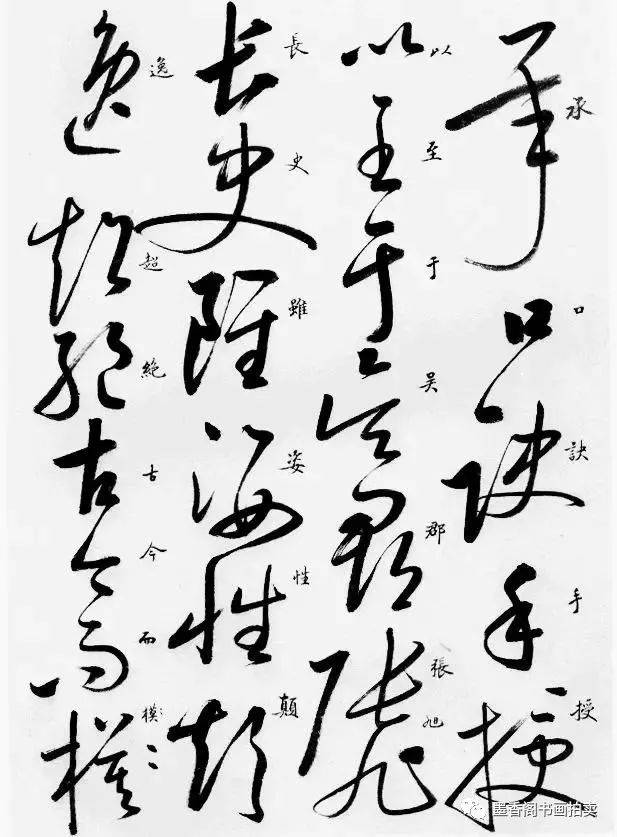 承口訣手授
以至于吴郡張旭
長史雖姿性顛
逸超絶古今而模
墨香阁书画拍卖